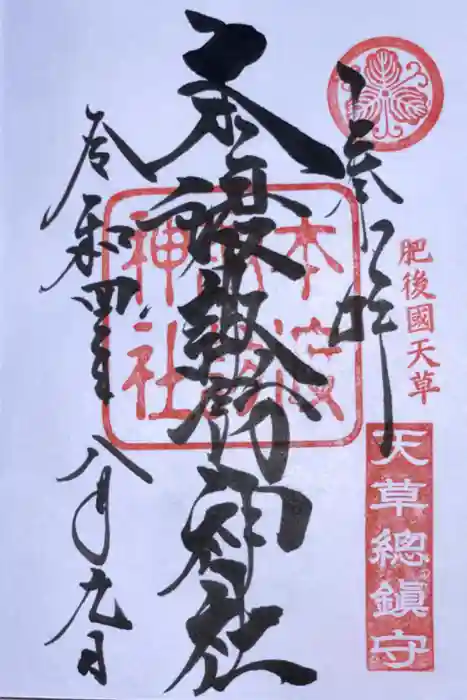 奉拝
肥後國天草
天草總鎮守
本渡諏訪神社
本渡
諏訪
神社
令和四年八月九日